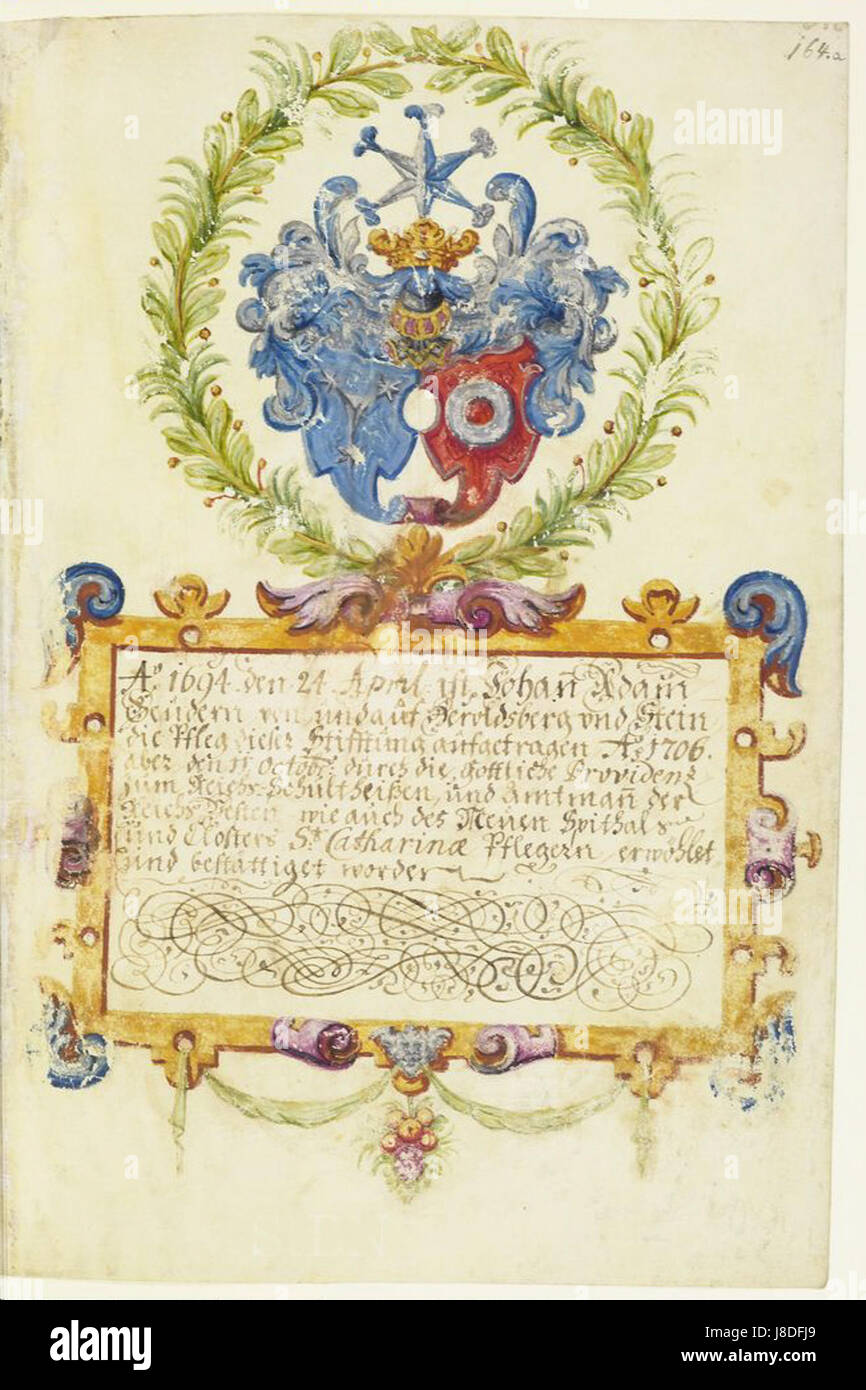 164.a
Aº 1694 den 24 April ist Johañ Adam̃
Geudern von und auf Heroldsberg vnd Stein
die Pfleg dieser Stifftung aufgetragen Aº 1706.
aber den 11 Octobr: durch die Göttliche Providenz
zum Reichs-Schultheißen, und Amtmañ der
Reichs Vesten wie auch des Neuen Spithals
und Closters St Catharinæ Pflegern erwöhlet
und bestättiget worden
alamy
alamy
Image ID: J8DFJ9
www.alamy.com